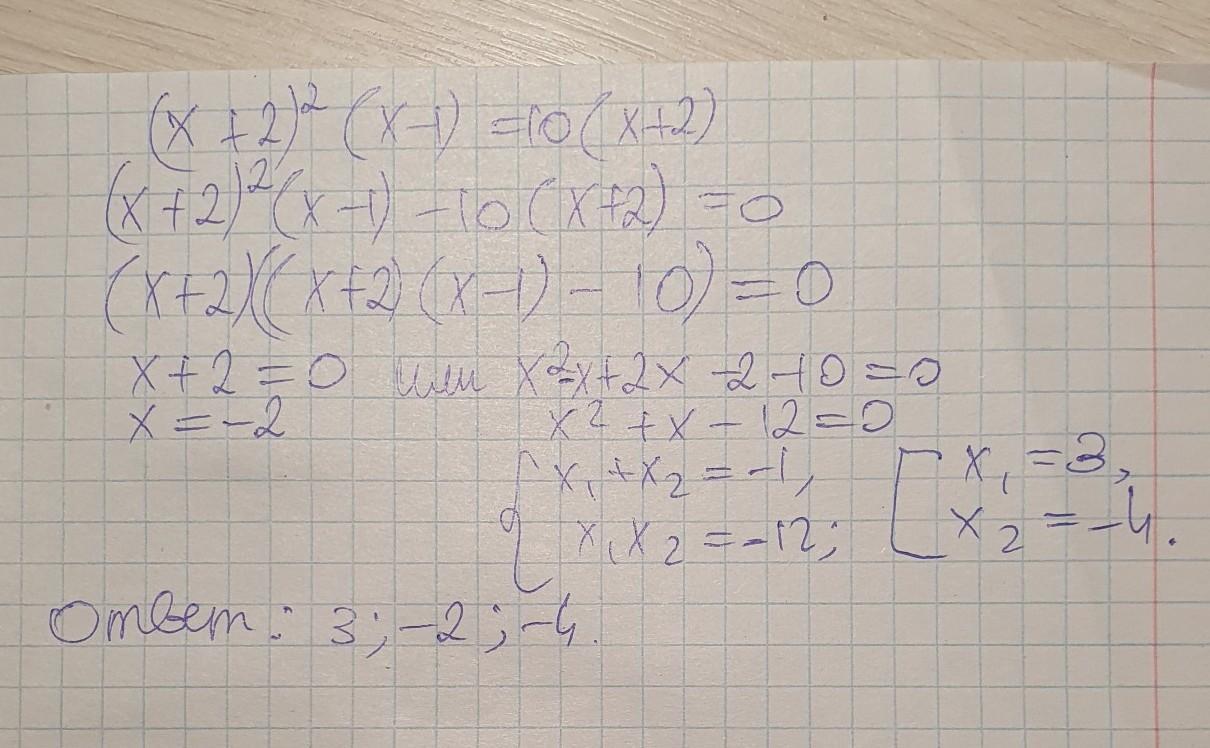 (x+2)²(x-1)=10(x+2)
(x+2)²(x-1)-10(x+2)=0
(x+2)((x+2)(x-1)-10)=0
x+2=0 или x²-x+2x-2-10=0
x=-2 x²+x-12=0
{ x₁+x₂=-1, [ x₁=3,
x₁x₂=-12; x₂=-4.
Ответ: 3;-2;-4.